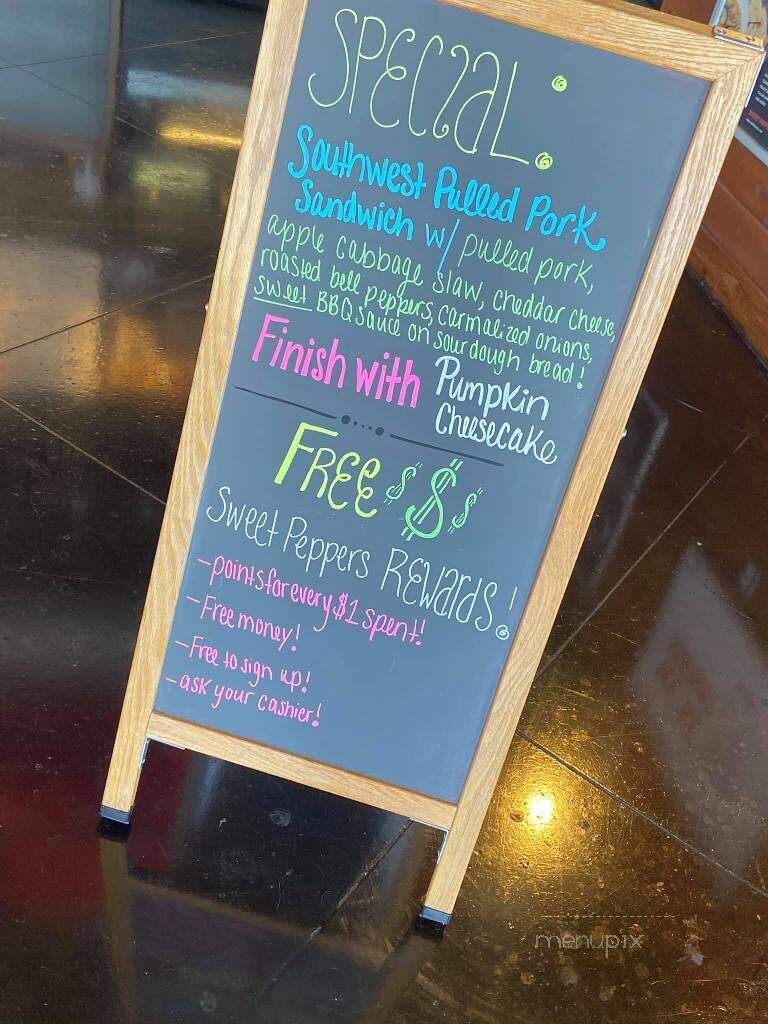 SPECIAL:
Southwest Pulled Pork
Sandwich w/ pulled pork,
apple cabbage slaw, cheddar cheese,
roasted bell peppers, carmalized onions,
sweet BBQ sauce on sourdough bread!
Finish with Pumpkin
Cheesecake
FREE $$$
Sweet Peppers REWARDS!
-points for every $1 spent!
-Free money!
-Free to sign up!
-ask your cashier!
menupix